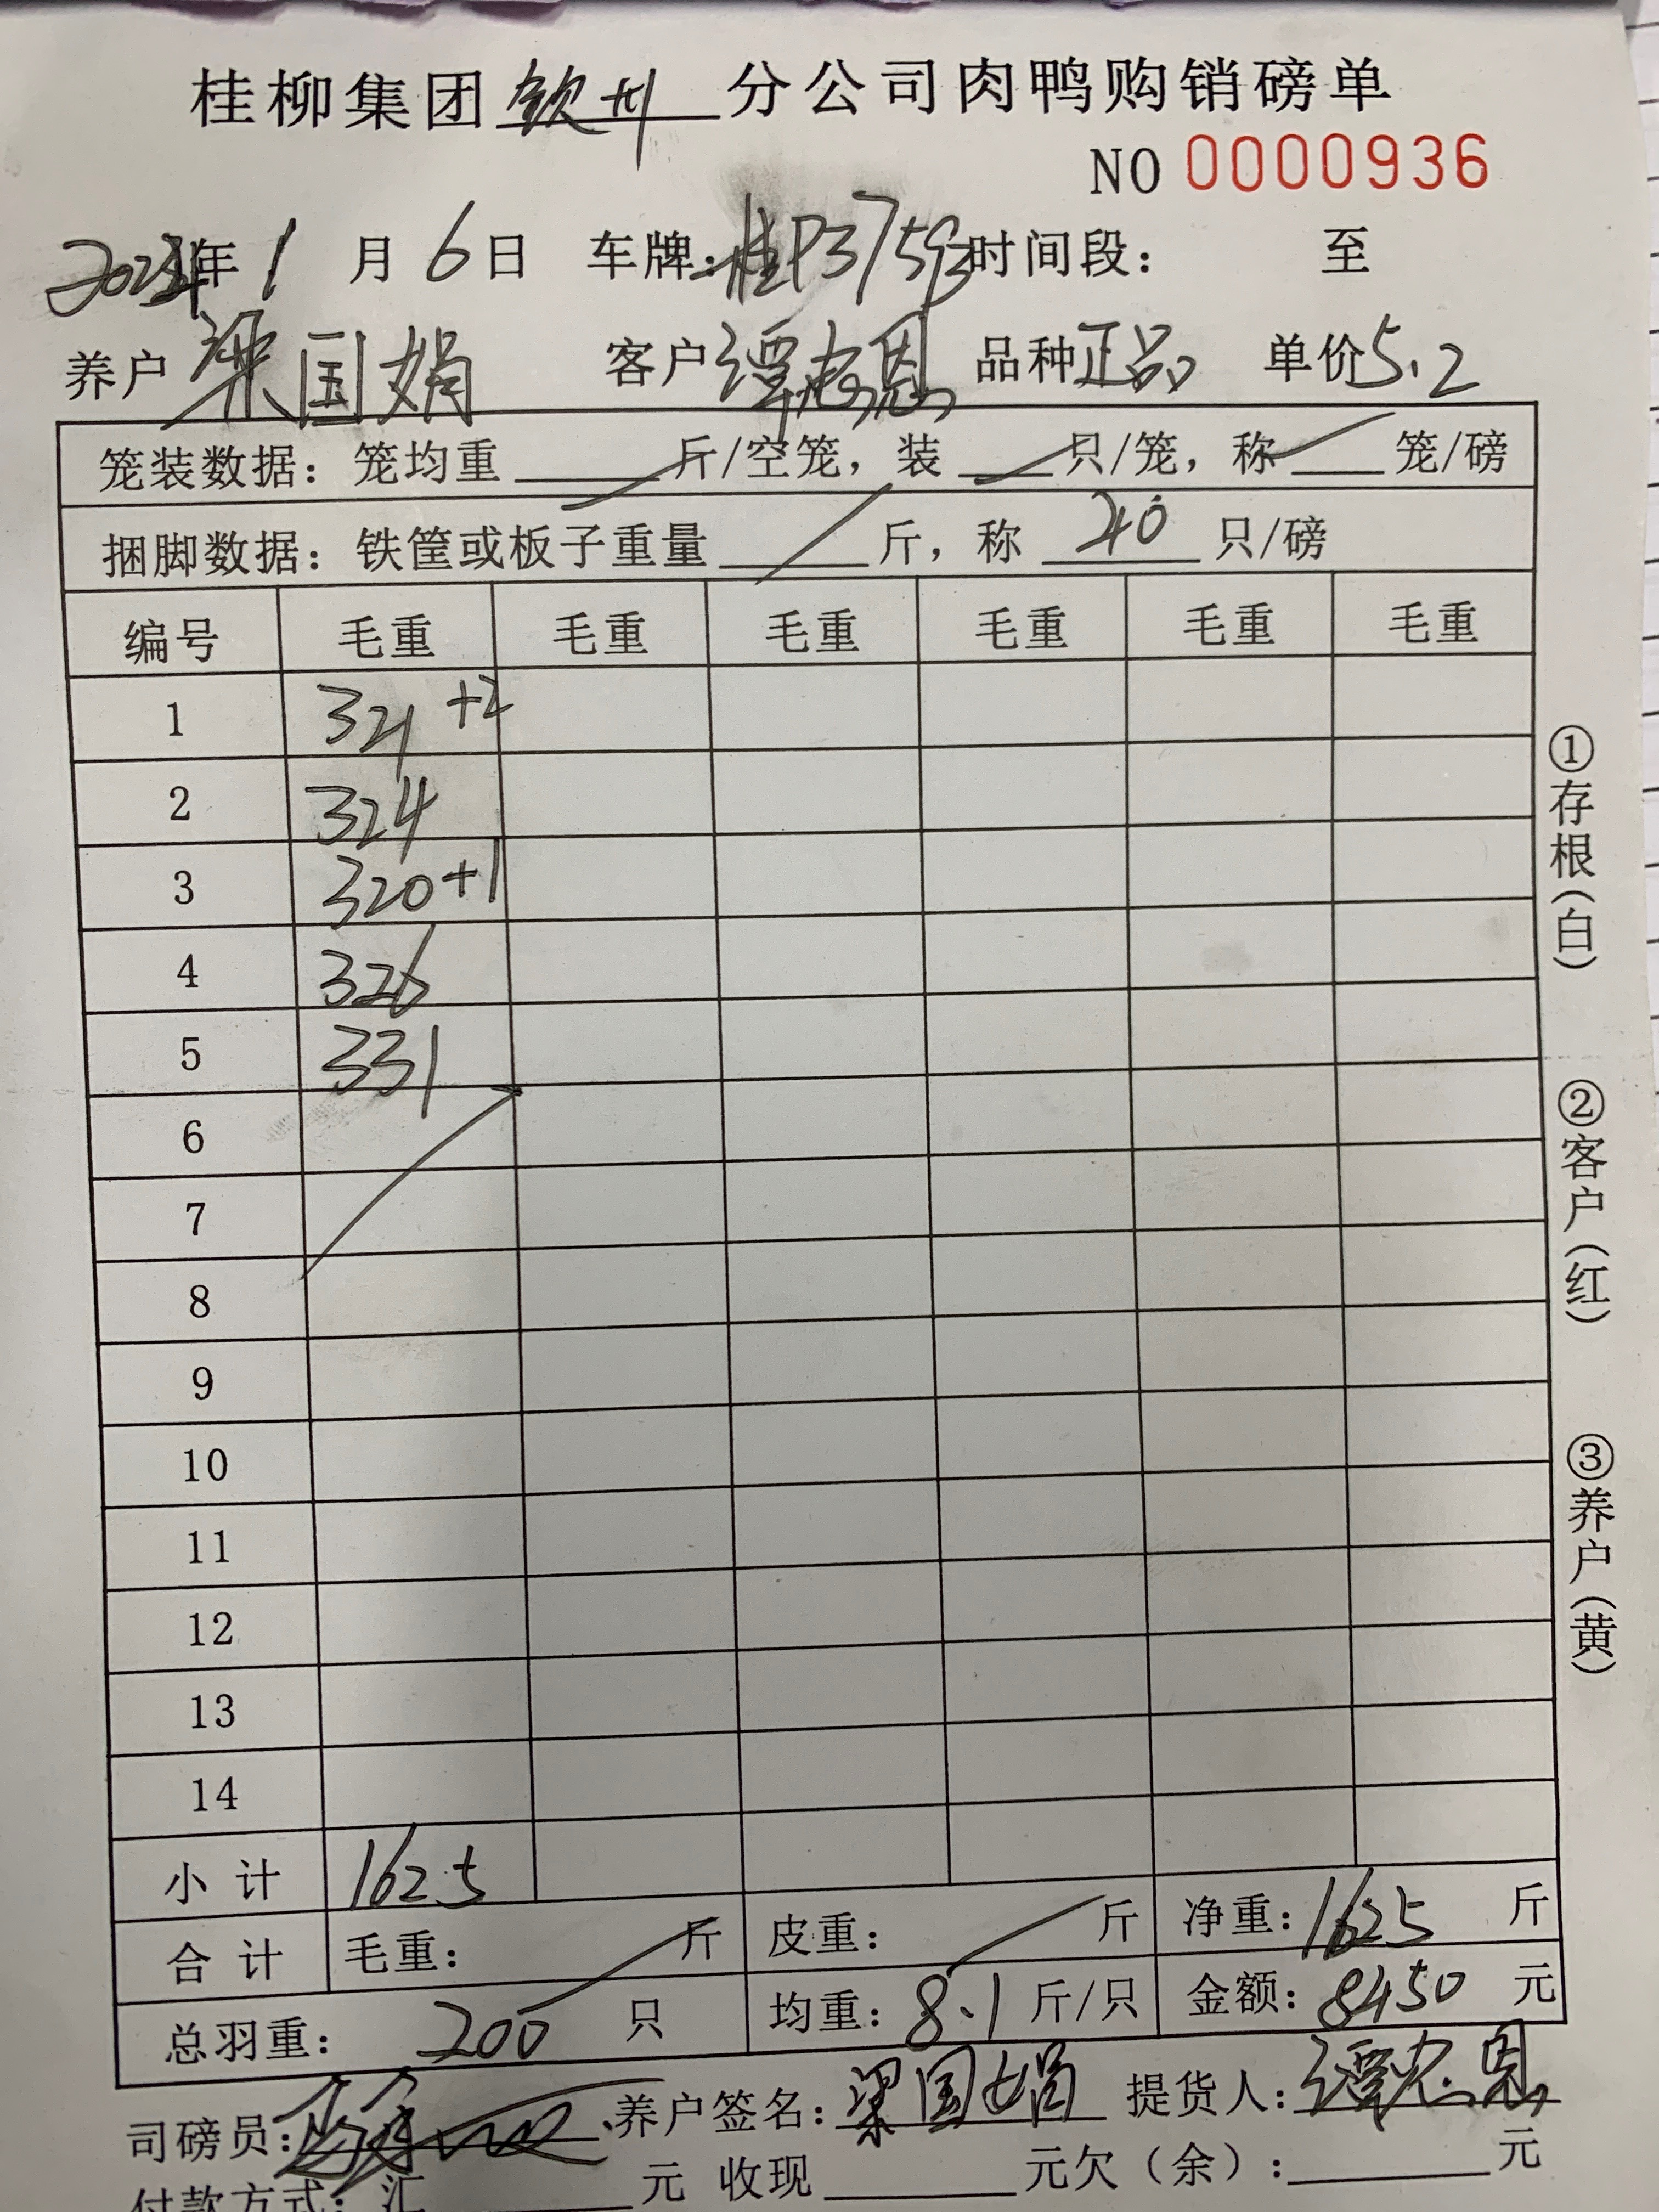 桂柳集团 钦州 分公司肉鸭购销磅单
NO 0000936
年 1 月 6 日 车牌：桂P37593 时间段： 至
养户 梁国娟 客户 谭忠恩 品种 正品 单价 5.2
笼装数据：笼均重 斤/空笼，装 只/笼，称 笼/磅
捆脚数据：铁筐或板子重量 斤，称 40 只/磅
编号 毛重 毛重 毛重 毛重 毛重 毛重
1 321 +2
2 324
3 320+1
4 326
5 331
6
7
8
9
10
11
12
13
14
小计 1625
合计 毛重： 斤 皮重： 斤 净重：1625 斤
总羽重： 200 只 均重：8.1 斤/只 金额：8450 元
司磅员： 养户签名：梁国娟 提货人：谭忠恩
付款方式：汇 元 收现 元欠（余）： 元
①存根（白）
②客户（红）
③养户（黄）